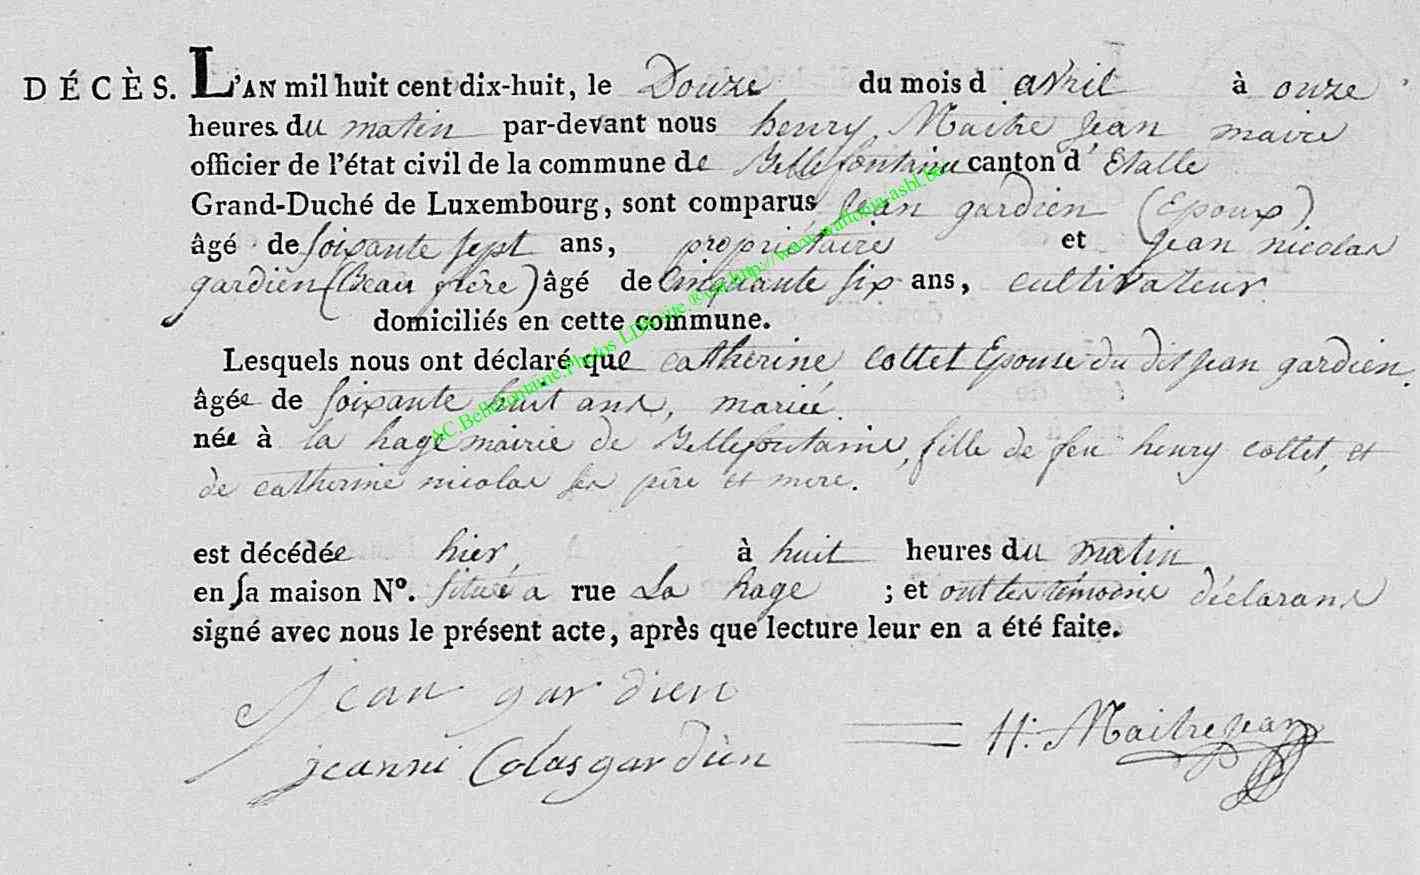 DÉCÈS. L'AN mil huit cent dix-huit, le Douze du mois d avril à onze
heures du matin par-devant nous henry Maitre Jean maire
officier de l'état civil de la commune de Bellefontaine canton d' Etalle
Grand-Duché de Luxembourg, sont comparus Jean gardien (Epoux)
âgé de soixante sept ans, propriétaire et Jean nicolas
gardien (Beau frère) âgé de Cinquante six ans, cultivateur
domiciliés en cette commune.
Lesquels nous ont déclaré que catherine Collet Epouse du dit Jean gardien.
âgée de soixante huit ans, mariée.
née à la hage mairie de Bellefontaine, fille de feu henry collet, et
de catherine nicolas ses père et mere.
est décédée hier, à huit heures du matin
en sa maison N°. située a rue La hage ; et ont les témoins déclarans
signé avec nous le présent acte, après que lecture leur en a été faite.
Jean gardien
jeanni Colas gardièn
H: Maitrejean